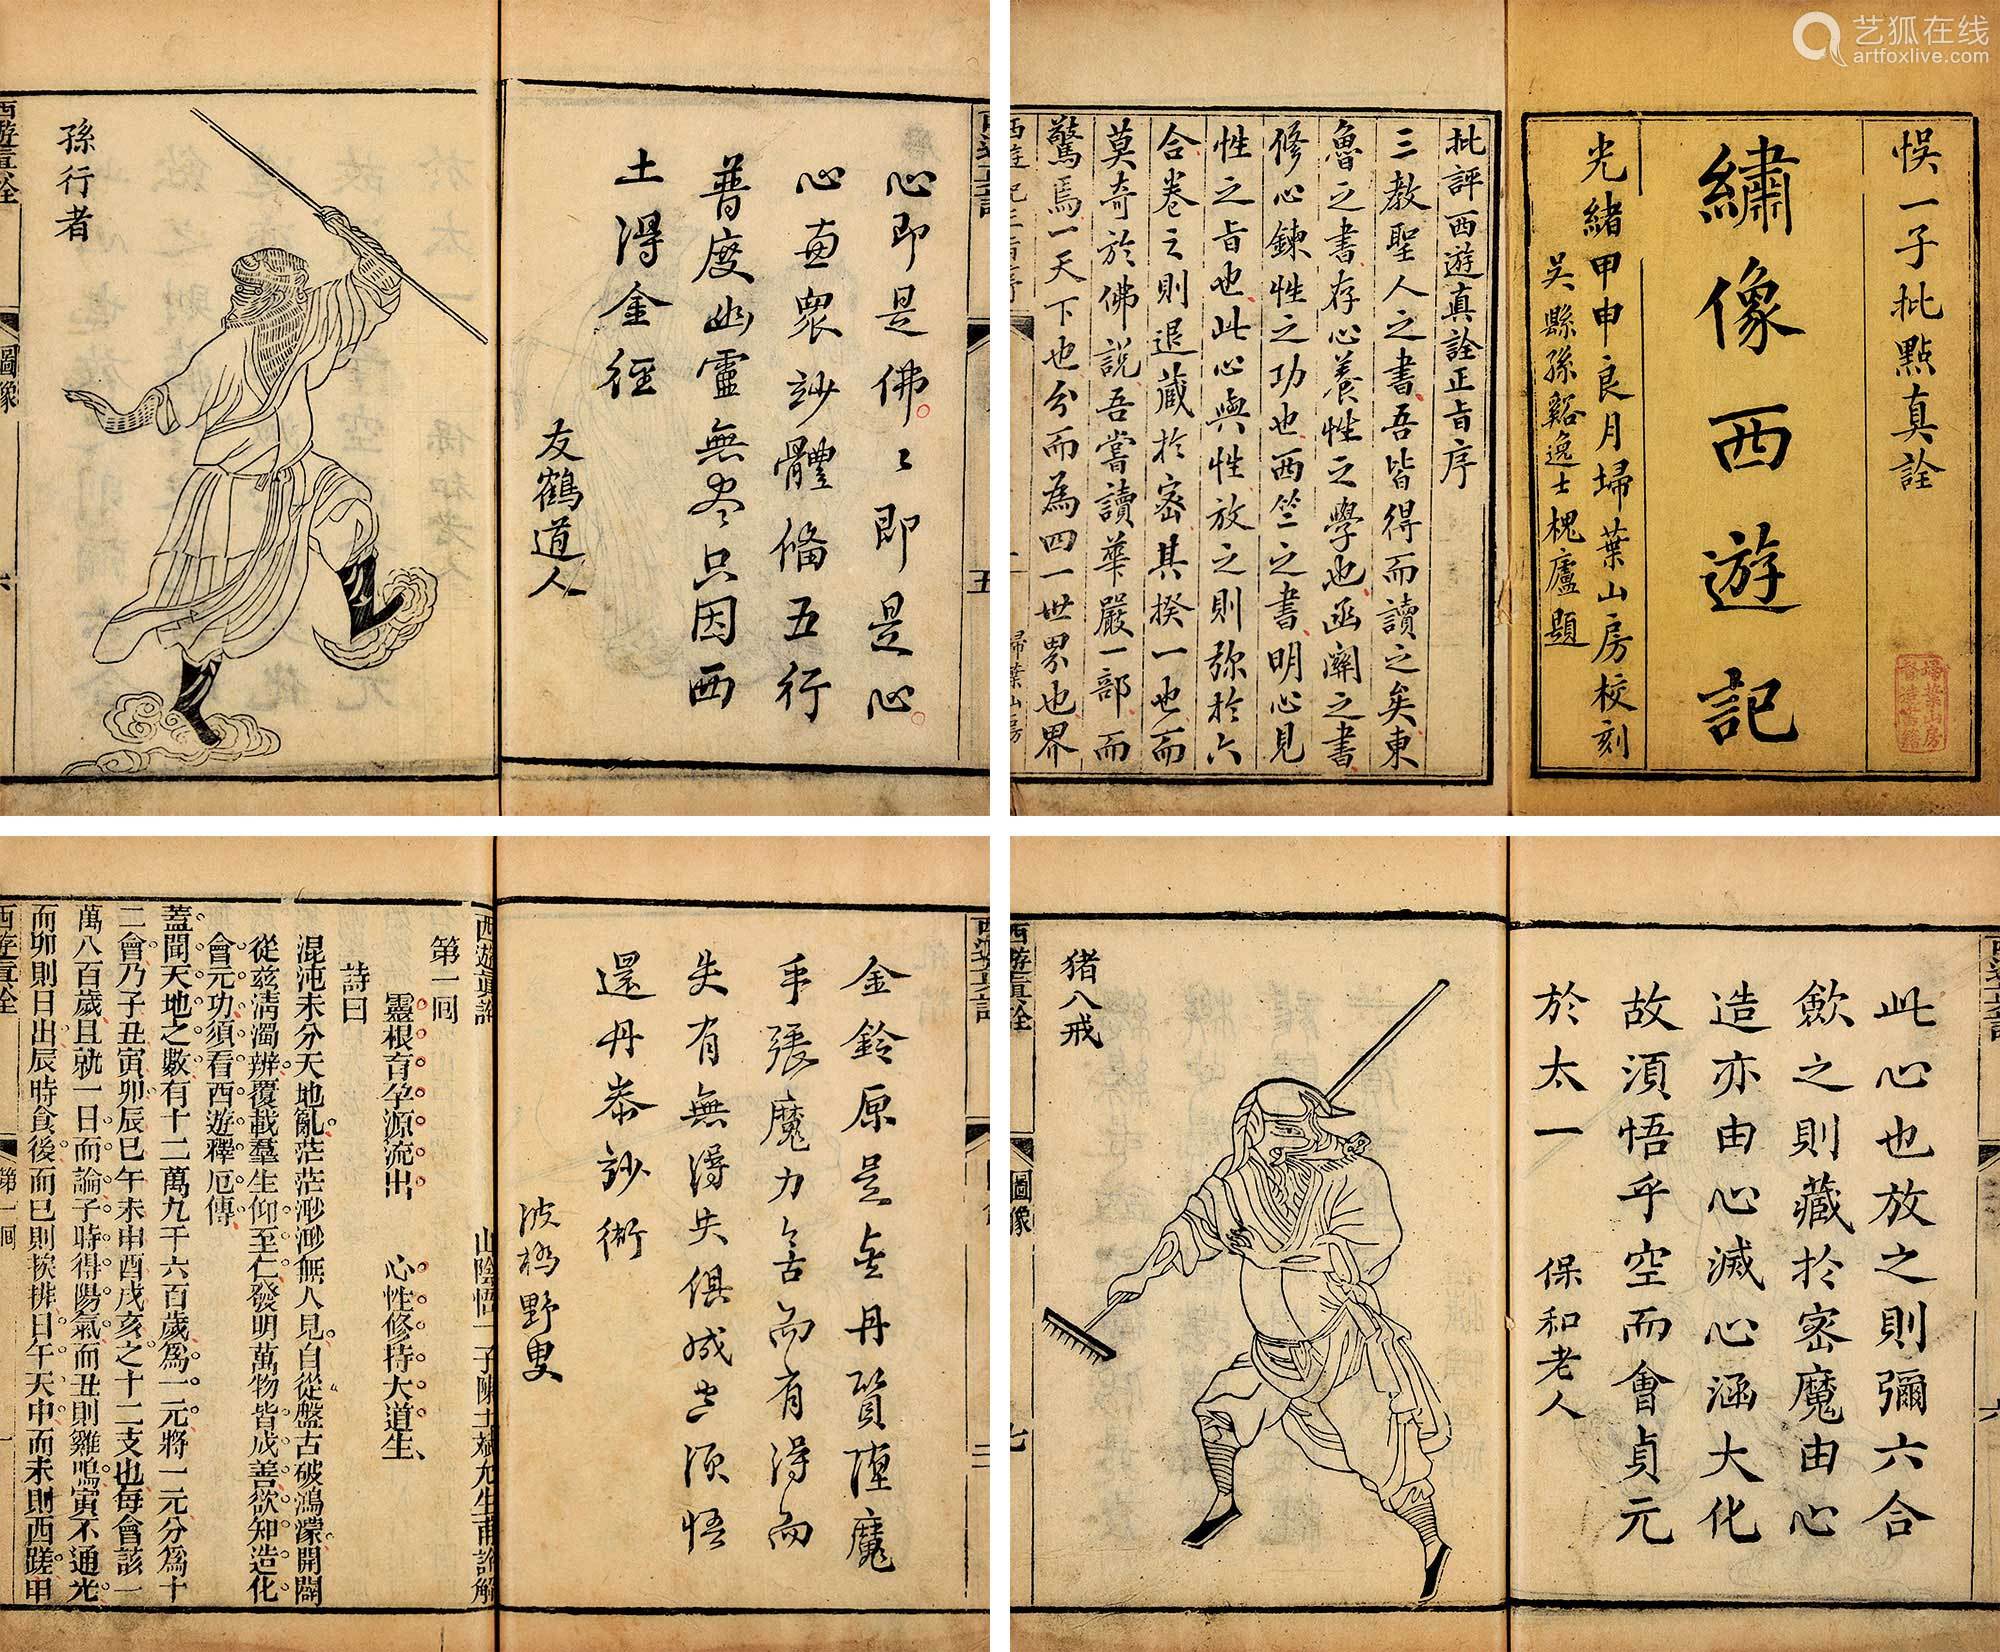 艺狐在线
artfoxlive.com
心即是佛佛即是心
心
衆妙體備五行
普度幽靈無
只因西
土得金經
友鶴道人
孫行者
圖像
悞一子批點真詮
繡像西遊記
光緒甲申良月埽葉山房校刻
吳縣孫谿逸士槐廬題
埽葉山房
督造書籍
批評西遊真詮正旨序
三教聖人之書吾皆得而讀之矣東
魯之書存心養性之學也函關之書
修心鍊性之功也西竺之書明心見
性之旨也此心與性放之則弥於六
合卷之則退藏於密其揆一也而
莫奇於佛說吾嘗讀華嚴一部而
驚焉一天下也分而為四一世界也界
埽葉山房
金鈴原是
丹質墮魔
手張魔力
而有得而
失有無得失俱成
須悟
還丹
妙術
波
野叟
西遊真詮
山陰悟一子陳士斌允生甫詮解
第一回
靈根育孕源流出 心性修持大道生
詩曰
混沌未分天地亂茫茫渺渺無人見自從盤古破鴻濛開闢
從茲清濁辨覆載羣生仰至仁發明萬物皆成善欲知造化
會元功須看西遊釋厄傳
蓋聞天地之數有十二萬九千六百歲爲一元將一元分爲十
二會乃子丑寅卯辰巳午未申酉戌亥之十二支也每會該一
萬八百歲且就一日而論子時得陽氣而丑則雞鳴寅不通光
而卯則日出辰時食後而巳則挨排日午天中而未則西蹉申
西遊真詮
第一回
一
此心也放之則彌六合
歛之則藏於密魔由心
造亦由心滅心涵大化
故須悟乎空而會貞元
於太一
保和老人
猪八戒
西遊真詮
圖像
七